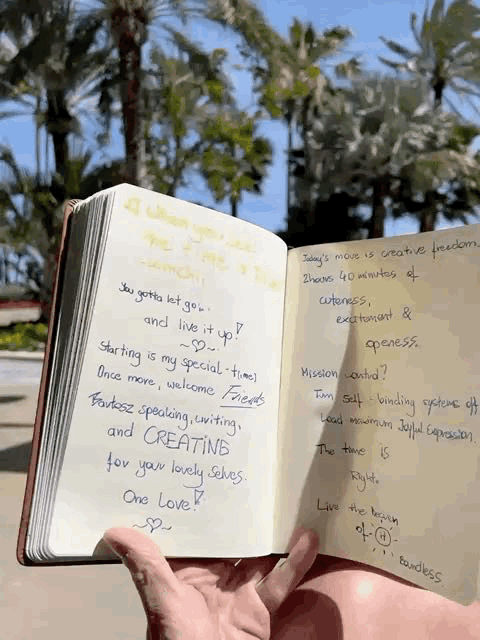 You gotta let go..
and live it up!
Starting is my special - t[ime]
Once more, welcome Friends
Bartosz speaking, writing,
and CREATING
for your lovely selves.
One Love!
Today's move is creative freedom.
2hours 40 minutes of
cuteness,
excitement &
openess.
Mission control?
Turn self-binding systems off
Load maximum Joyful Expression.
The time is
Right.
Live the Heaven
of it
boundless